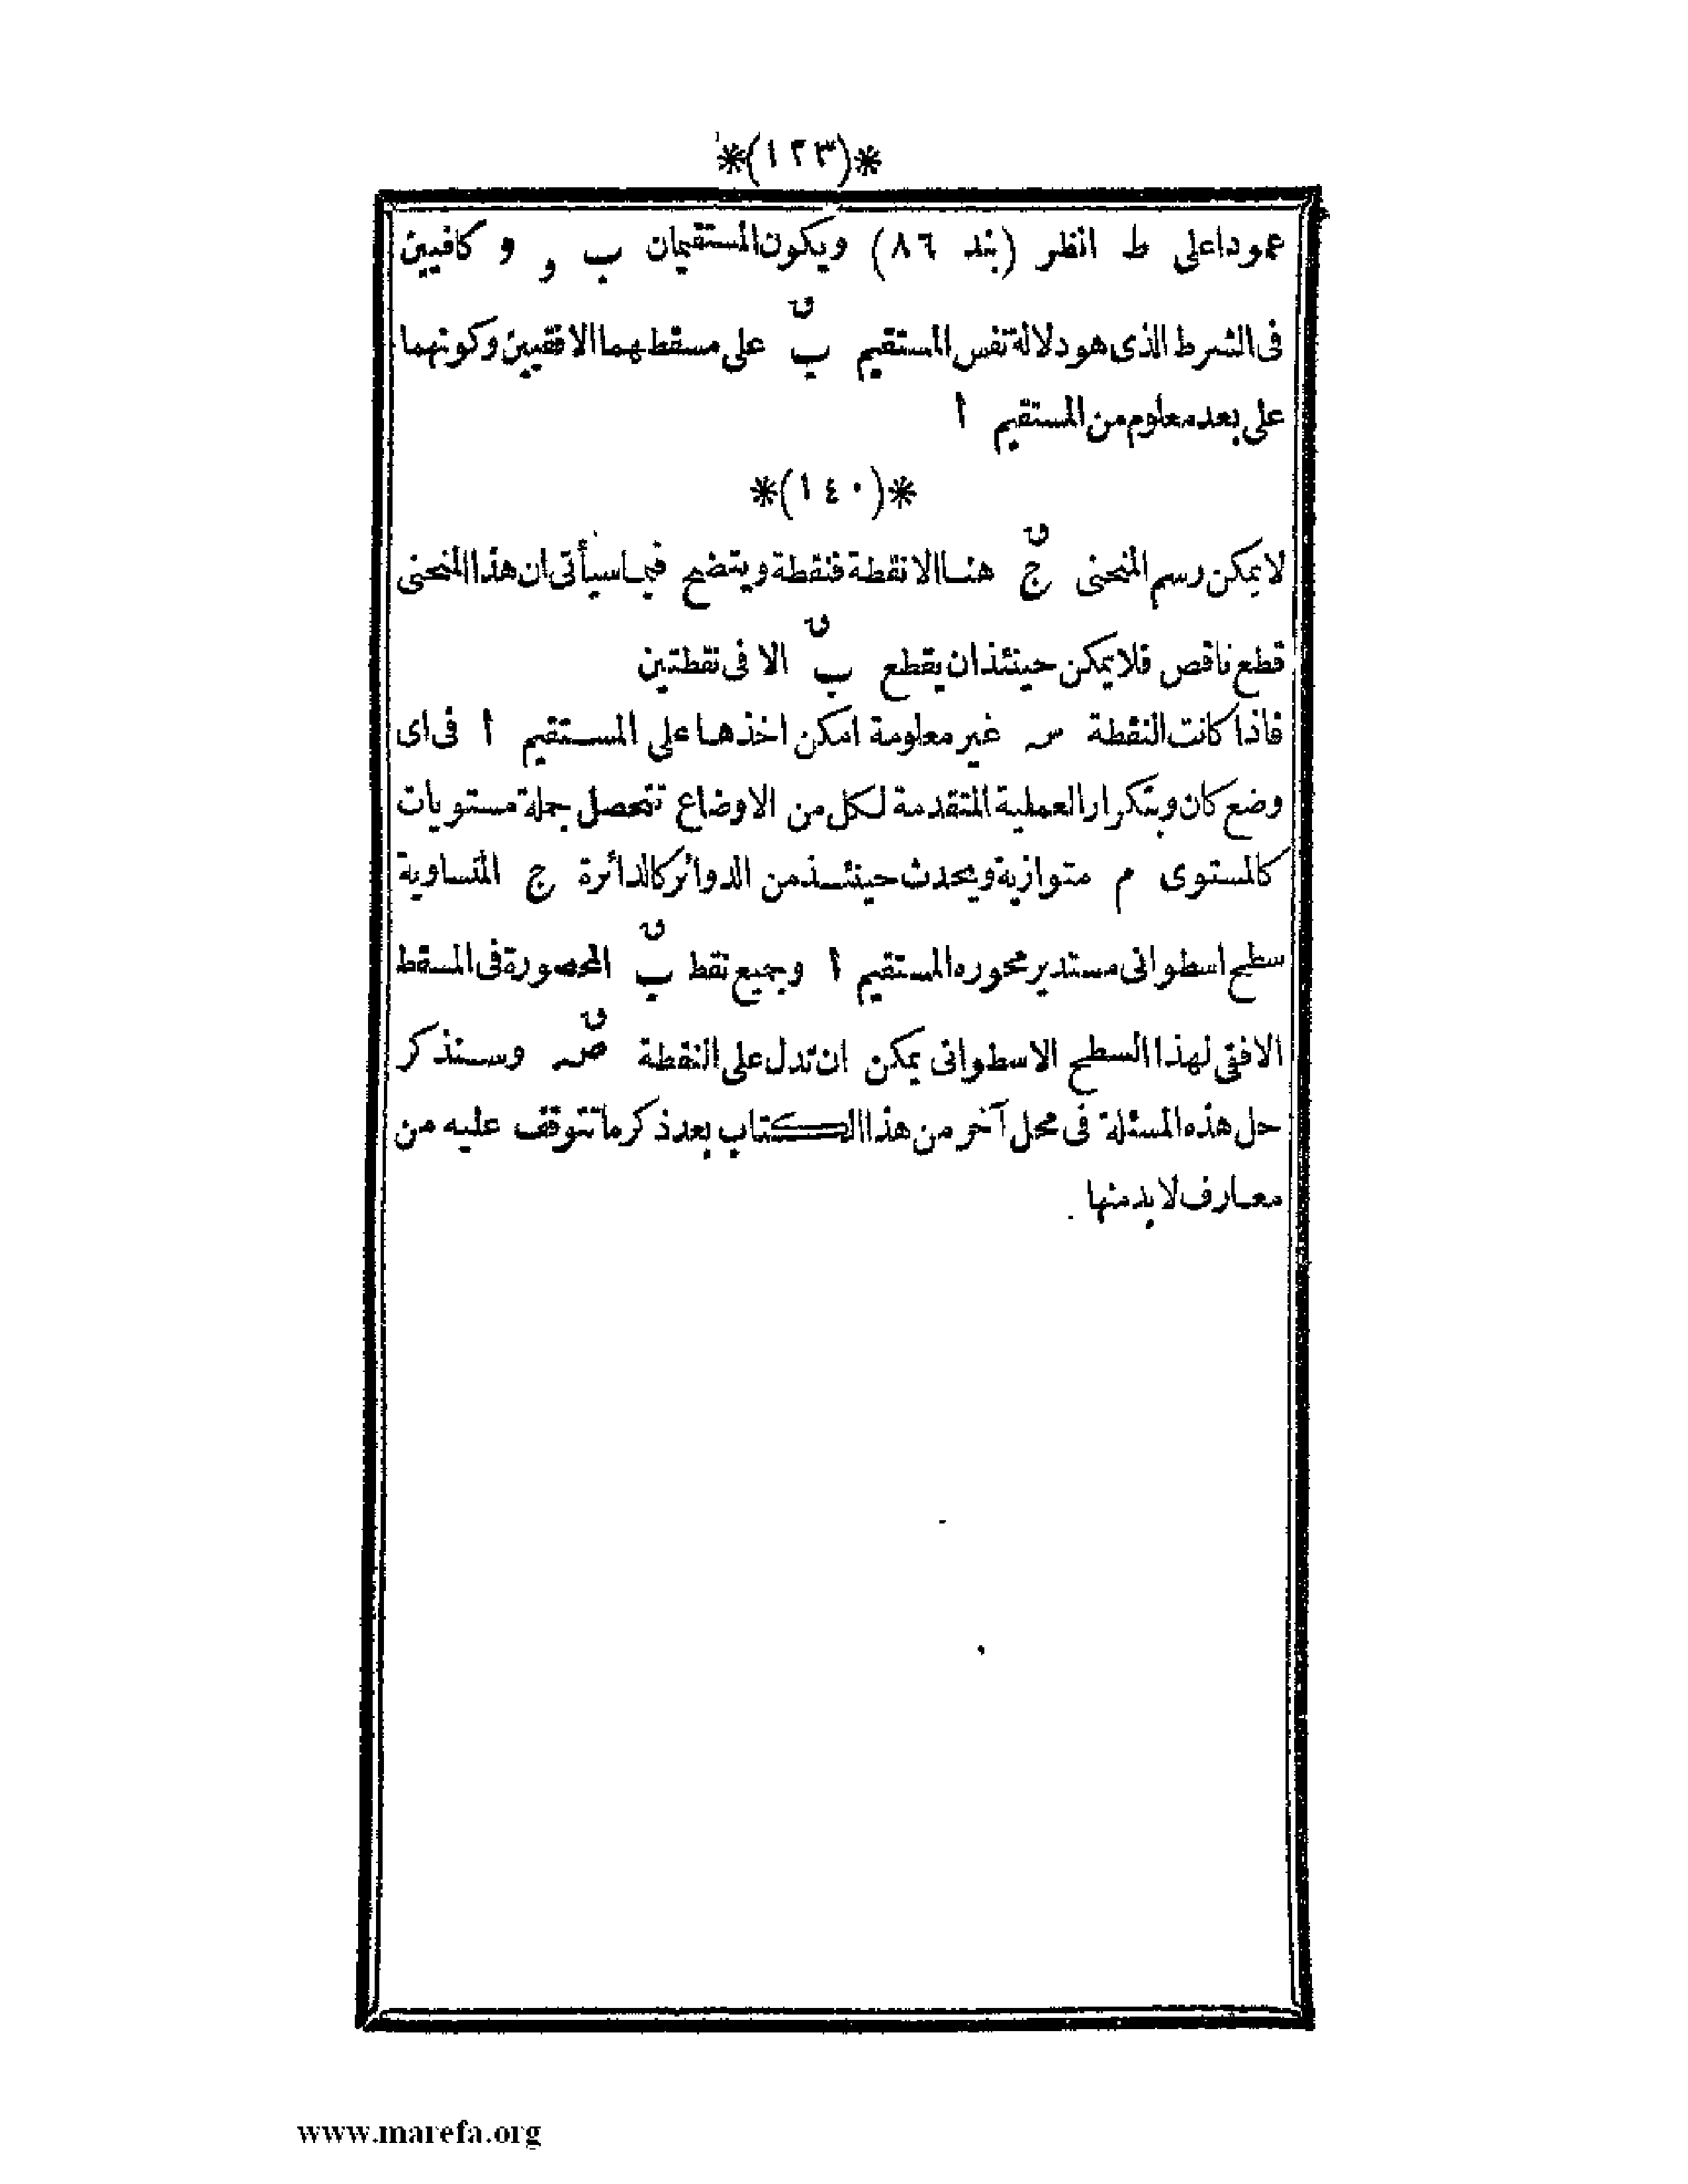 *(١٢٣)*
عموداعلى ط انظر (بند ٨٦) ويكون المستقيمان ب و و كافيين
فى الشرط الذى هو دلالة نفس المستقيم بٯ على مسقطهما الافقيين وكونهما
على بعد معلوم من المستقيم أ
*(١٤٠)*
لا يمكن رسم المنحنى جٯ هنا الا نقطة فنقطة ويتضح فيما سيأتى ان هذا المنحنى
قطع ناقص فلا يمكن حينئذ ان يقطع بٯ الا فى نقطتين
فاذا كانت النقطة سہ غير معلومة امكن اخذها على المستقيم أ فى اى
وضع كان وبتكرار العملية المتقدمة لكل من الاوضاع تتحصل جملة مستويات
كالمستوى م متوازية ويحدث حينئذ من الدوائر كالدائرة ج المتساوية
سطح اسطوانى مستدير محوره المستقيم أ وجميع نقط بٯ المحصورة فى المسقط
الافقى لهذا السطح الاسطوانى يمكن ان تدل على النقطة صہٯ وسنذكر
حل هذه المسئلة فى محل آخر من هذا الكتاب بعد ذكر ما تتوقف عليه من
معارف لا بد منها
www.marefa.org